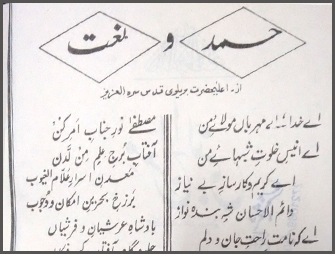 حمد و نعت
از: اعلیٰحضرت بریلوی قدس سرہ العزیز
اے خدا اے مہرباں مولائے من
اے انیس خلوت شبہائے من
اے کریم و کارساز بے نیاز
دائم الاحسان شہ بندہ نواز
اے کہ نامت راحت جان و دلم
مصطفےٰ نور جناب امر کن
آفتاب برج علم من لدن
معدن اسرار علام الغیوب
برزخ بحرین امکان و وجوب
بادشاہ عرشیان و فرشیاں